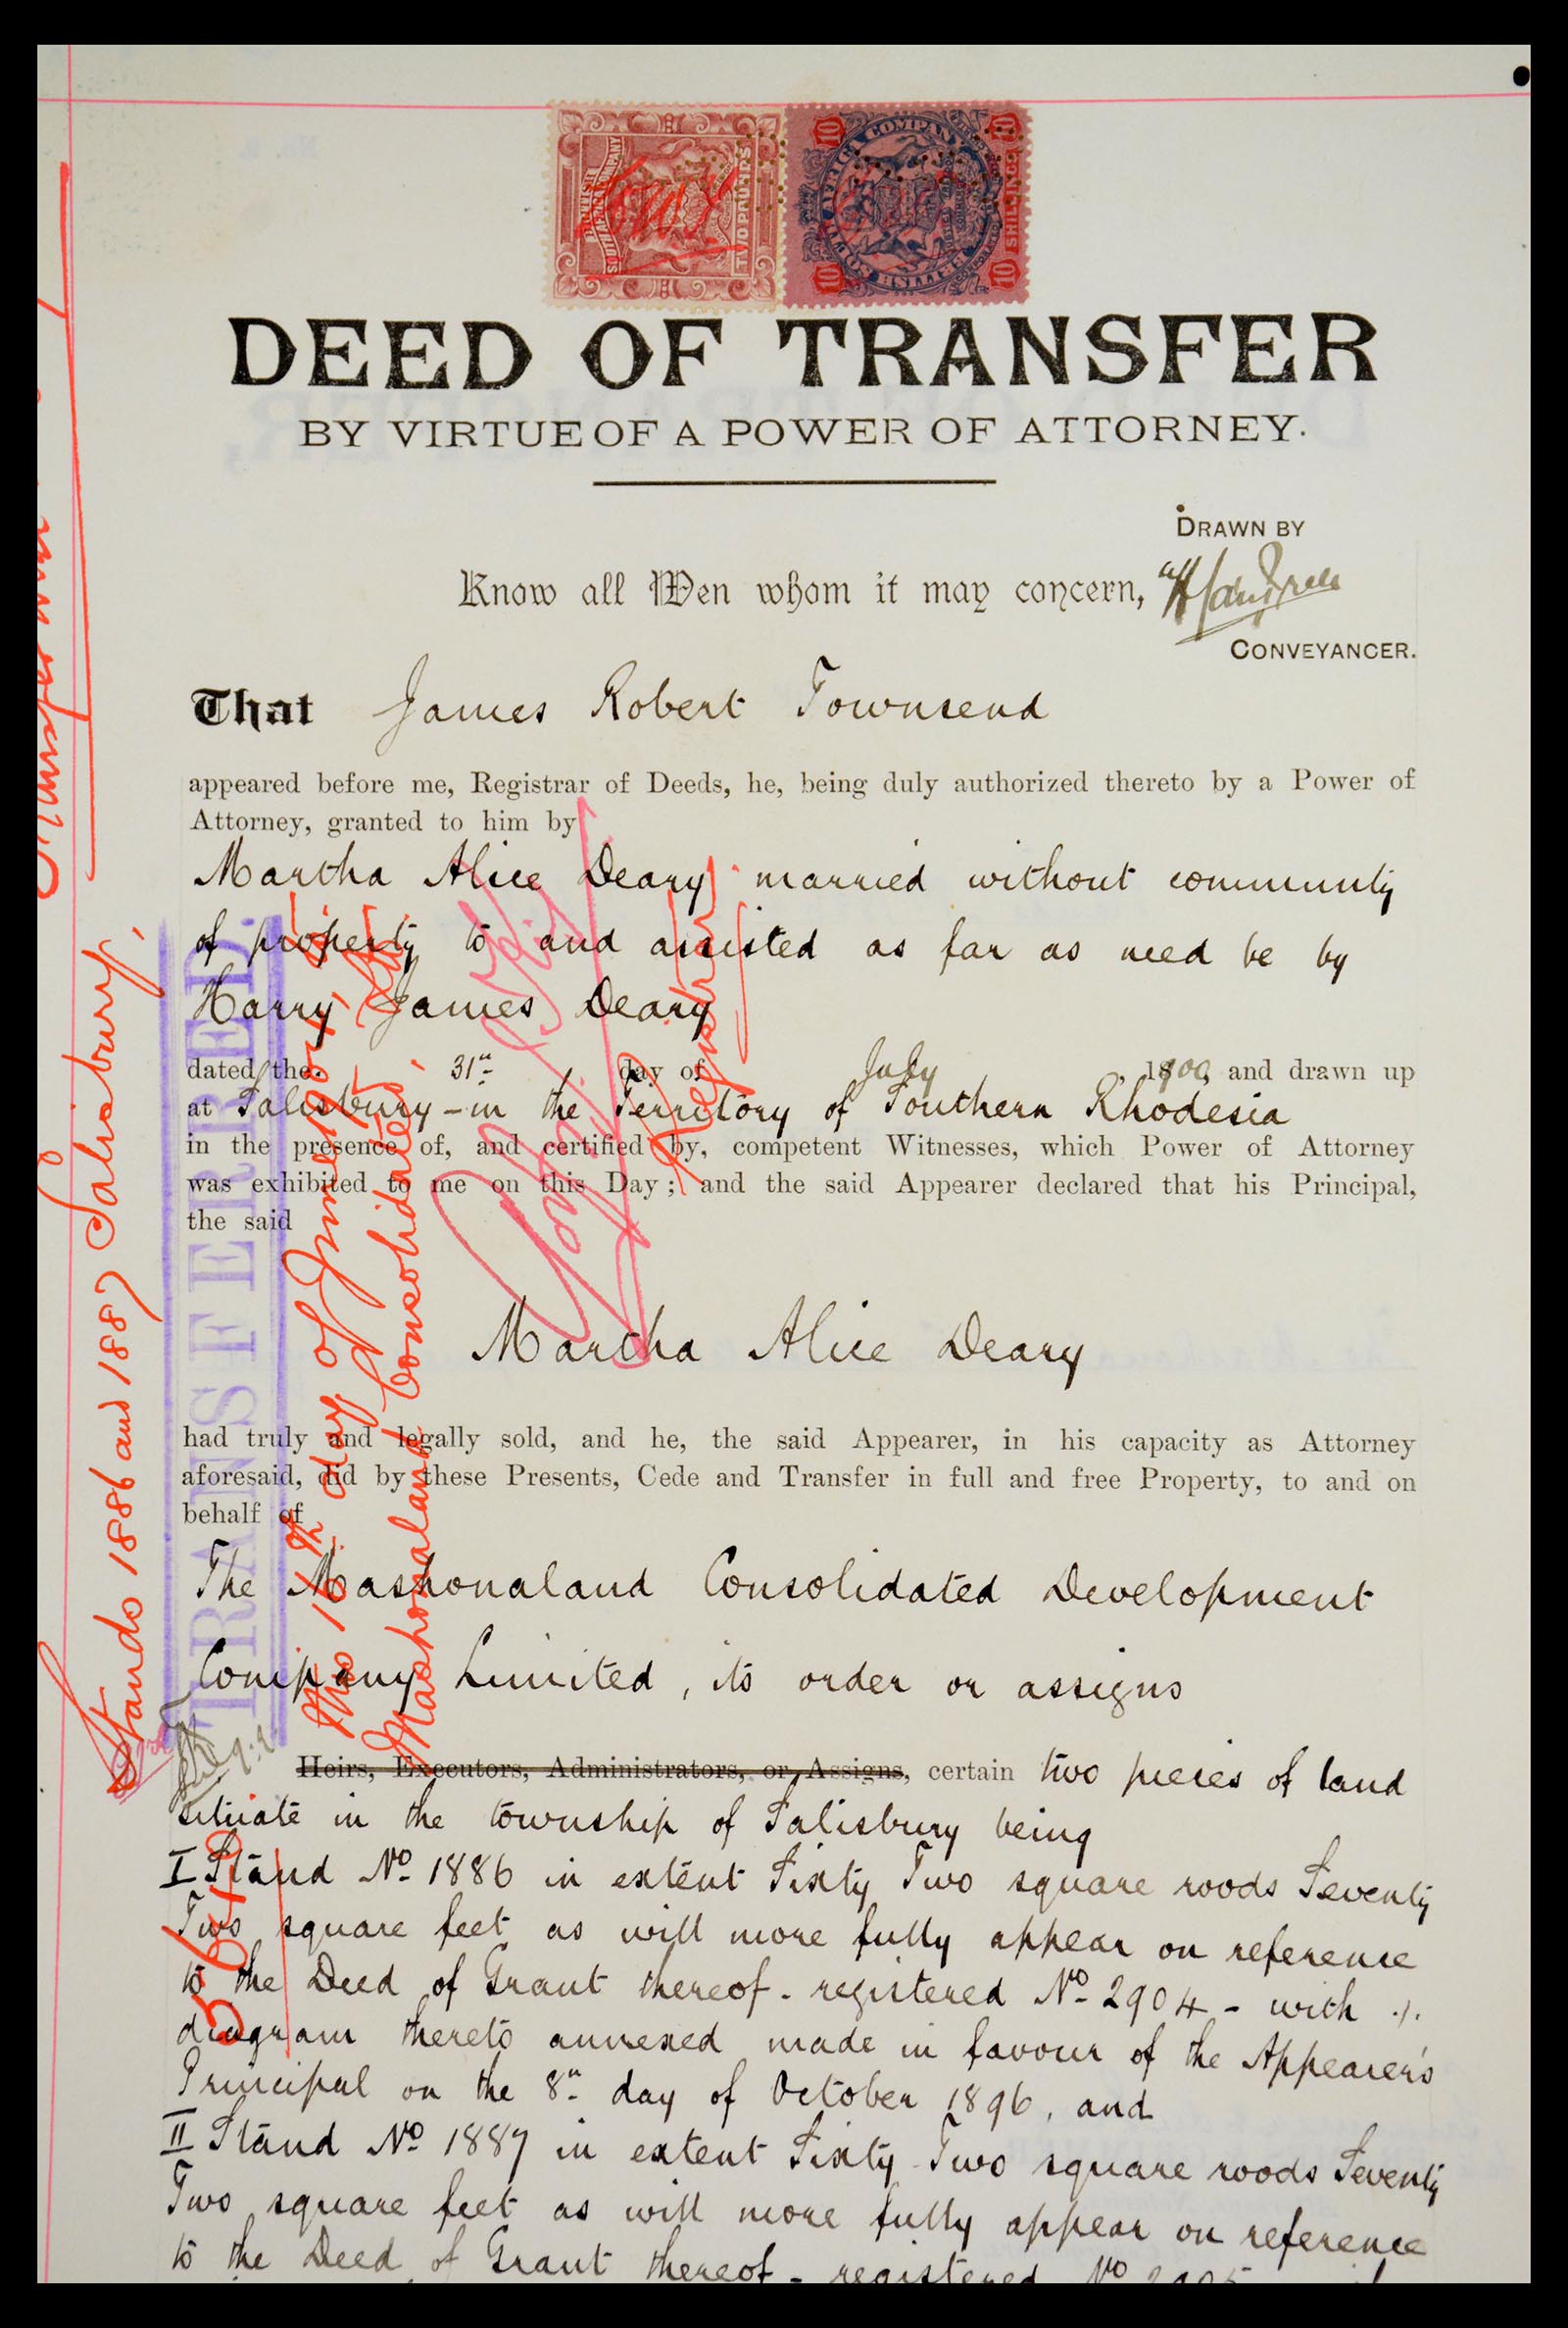 BRITISH
SOUTH AFRICA COMPANY
TWO POUNDS
10 10
10 10
SHILLINGS
DEED OF TRANSFER
BY VIRTUE OF A POWER OF ATTORNEY.
DRAWN BY
Know all Men whom it may concern,
CONVEYANCER.
That James Robert Townsend
appeared before me, Registrar of Deeds, he, being duly authorized thereto by a Power of
Attorney, granted to him by
Martha Alice Deary married without community
of property to and assisted as far as need be by
Harry James Deary
dated the 31st day of July 1900, and drawn up
at Salisbury - in the Territory of Southern Rhodesia
in the presence of, and certified by, competent Witnesses, which Power of Attorney
was exhibited to me on this Day; and the said Appearer declared that his Principal,
the said
Martha Alice Deary
had truly and legally sold, and he, the said Appearer, in his capacity as Attorney
aforesaid, did by these Presents, Cede and Transfer in full and free Property, to and on
behalf of
The Mashonaland Consolidated Development
Company Limited, its order or assigns
Heirs, Executors, Administrators, or Assigns, certain two pieces of land
situate in the township of Salisbury being
I Stand No 1886 in extent Sixty Two square roods Seventy
Two square feet as will more fully appear on reference
to the Deed of Grant thereof - registered No 2904 - with
diagram thereto annexed made in favour of the Appearer's
Principal on the 8th day of October 1896, and
II Stand No 1887 in extent Sixty Two square roods Seventy
Two square feet as will more fully appear on reference
to the Deed of Grant thereof - registered No 2905
Stands 1886 and 1887 Salisbury,
TRANSFERRED.
this 16th day of June 1901
Mashonaland Consolidated
Registrar